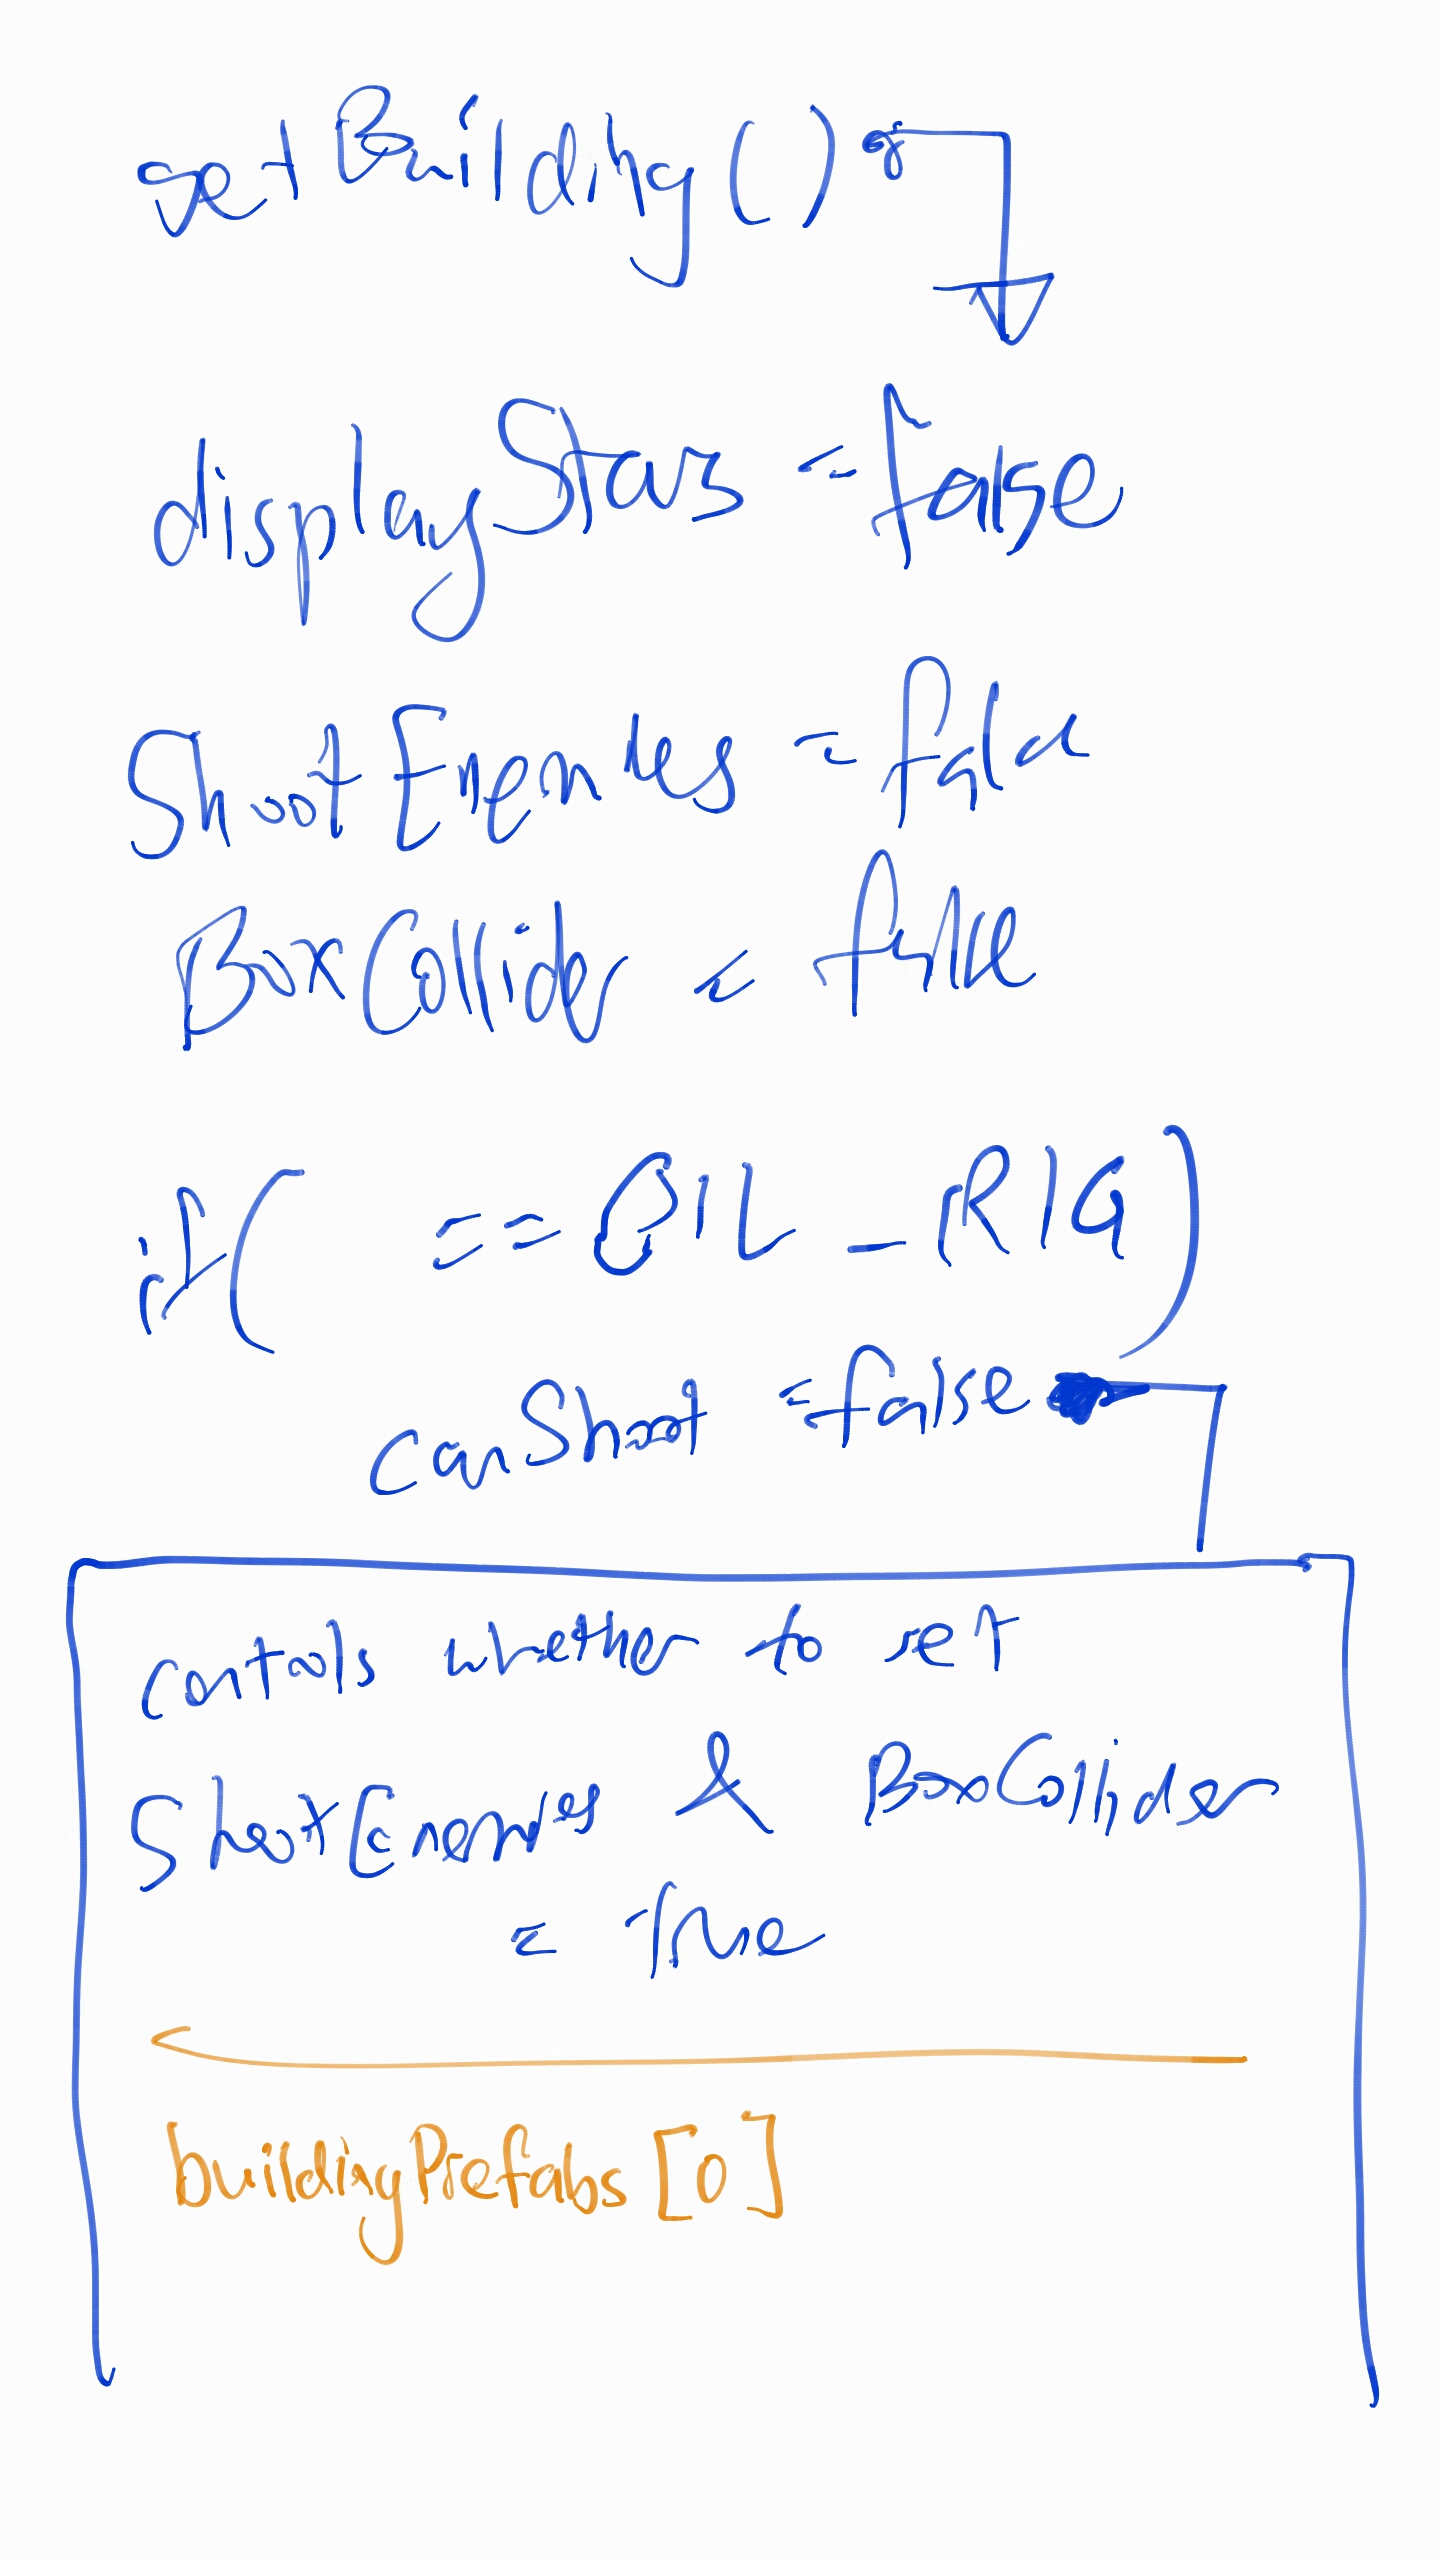 setBuilding()
displayStars = false
ShootEnemies = false
BoxCollider = false
if(    == OIL_RIG)
canShoot = false
controls whether to set
ShootEnemies & BoxCollider
= True
buildingPrefabs[0]